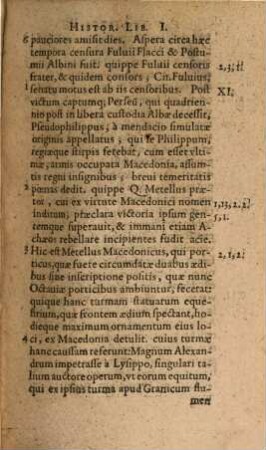 HISTOR. LIB. I.
6 pauciores amisit dies. Aspera circa hæc
tempora censura Fuluii Flacci & Postu-
mii Albini fuit. quippe Fuluii censoris
frater, & quidem consors, Cn. Fuluius,
senatu motus est ab iis censoribus. Post
victum captumq; Perseũ, qui quadrien-
nio post in libera custodia Albæ decessit,
Pseudophilippus, à mendacio simulatæ
originis appellatus, qui se Philippum,
regiæque stirpis ferebat, cum esset vlti-
mæ, armis occupata Macedonia, assum-
tis regni insignibus, breui temeritatis
pœnas dedit. quippe Q. Metellus præ-
tor, cui ex virtute Macedonici nomen
inditum, præclara victoria ipsum gen-
temque superauit, & immani etiam A-
chæos rebellare incipientes fudit acie.
3 Hic est Metellus Macedonicus, qui por-
ticus, quæ fuere circumdatæ duabus ædi-
bus sine inscriptione positis, quæ nunc
Octauiæ porticibus ambiuntur, fecerat:
quique hanc turmam statuarum eque-
strium, quæ frontem ædium spectant, ho-
dieque maximum ornamentum eius lo-
4 ci, ex Macedonia detulit. cuius turmæ
hanc caussam referunt: Magnum Alexan-
drum impetrasse à Lysippo, singulari ta-
lium auctore operum, vt eorum equitum,
qui ex ipsius turma apud Granicum flu-
men
2, 3, 1!
XI.
1, 13, 2. 2!
5, 1.
2, 1, 2!